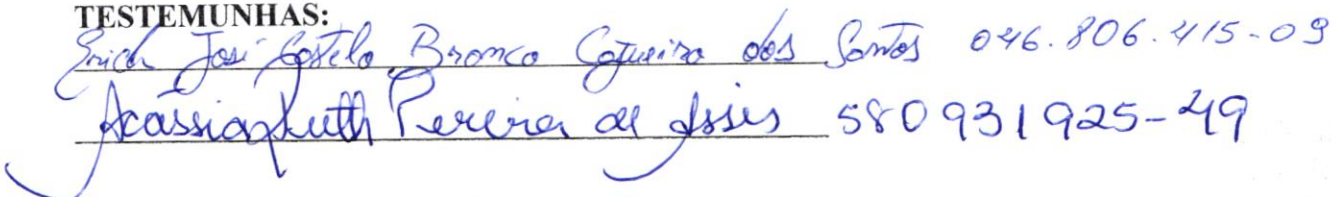 TESTEMUNHAS:
Erich José Castelo Branco Coqueiro dos Santos 046.806.415-09
Acassia Ruth Pereira de Assis 580931925-49